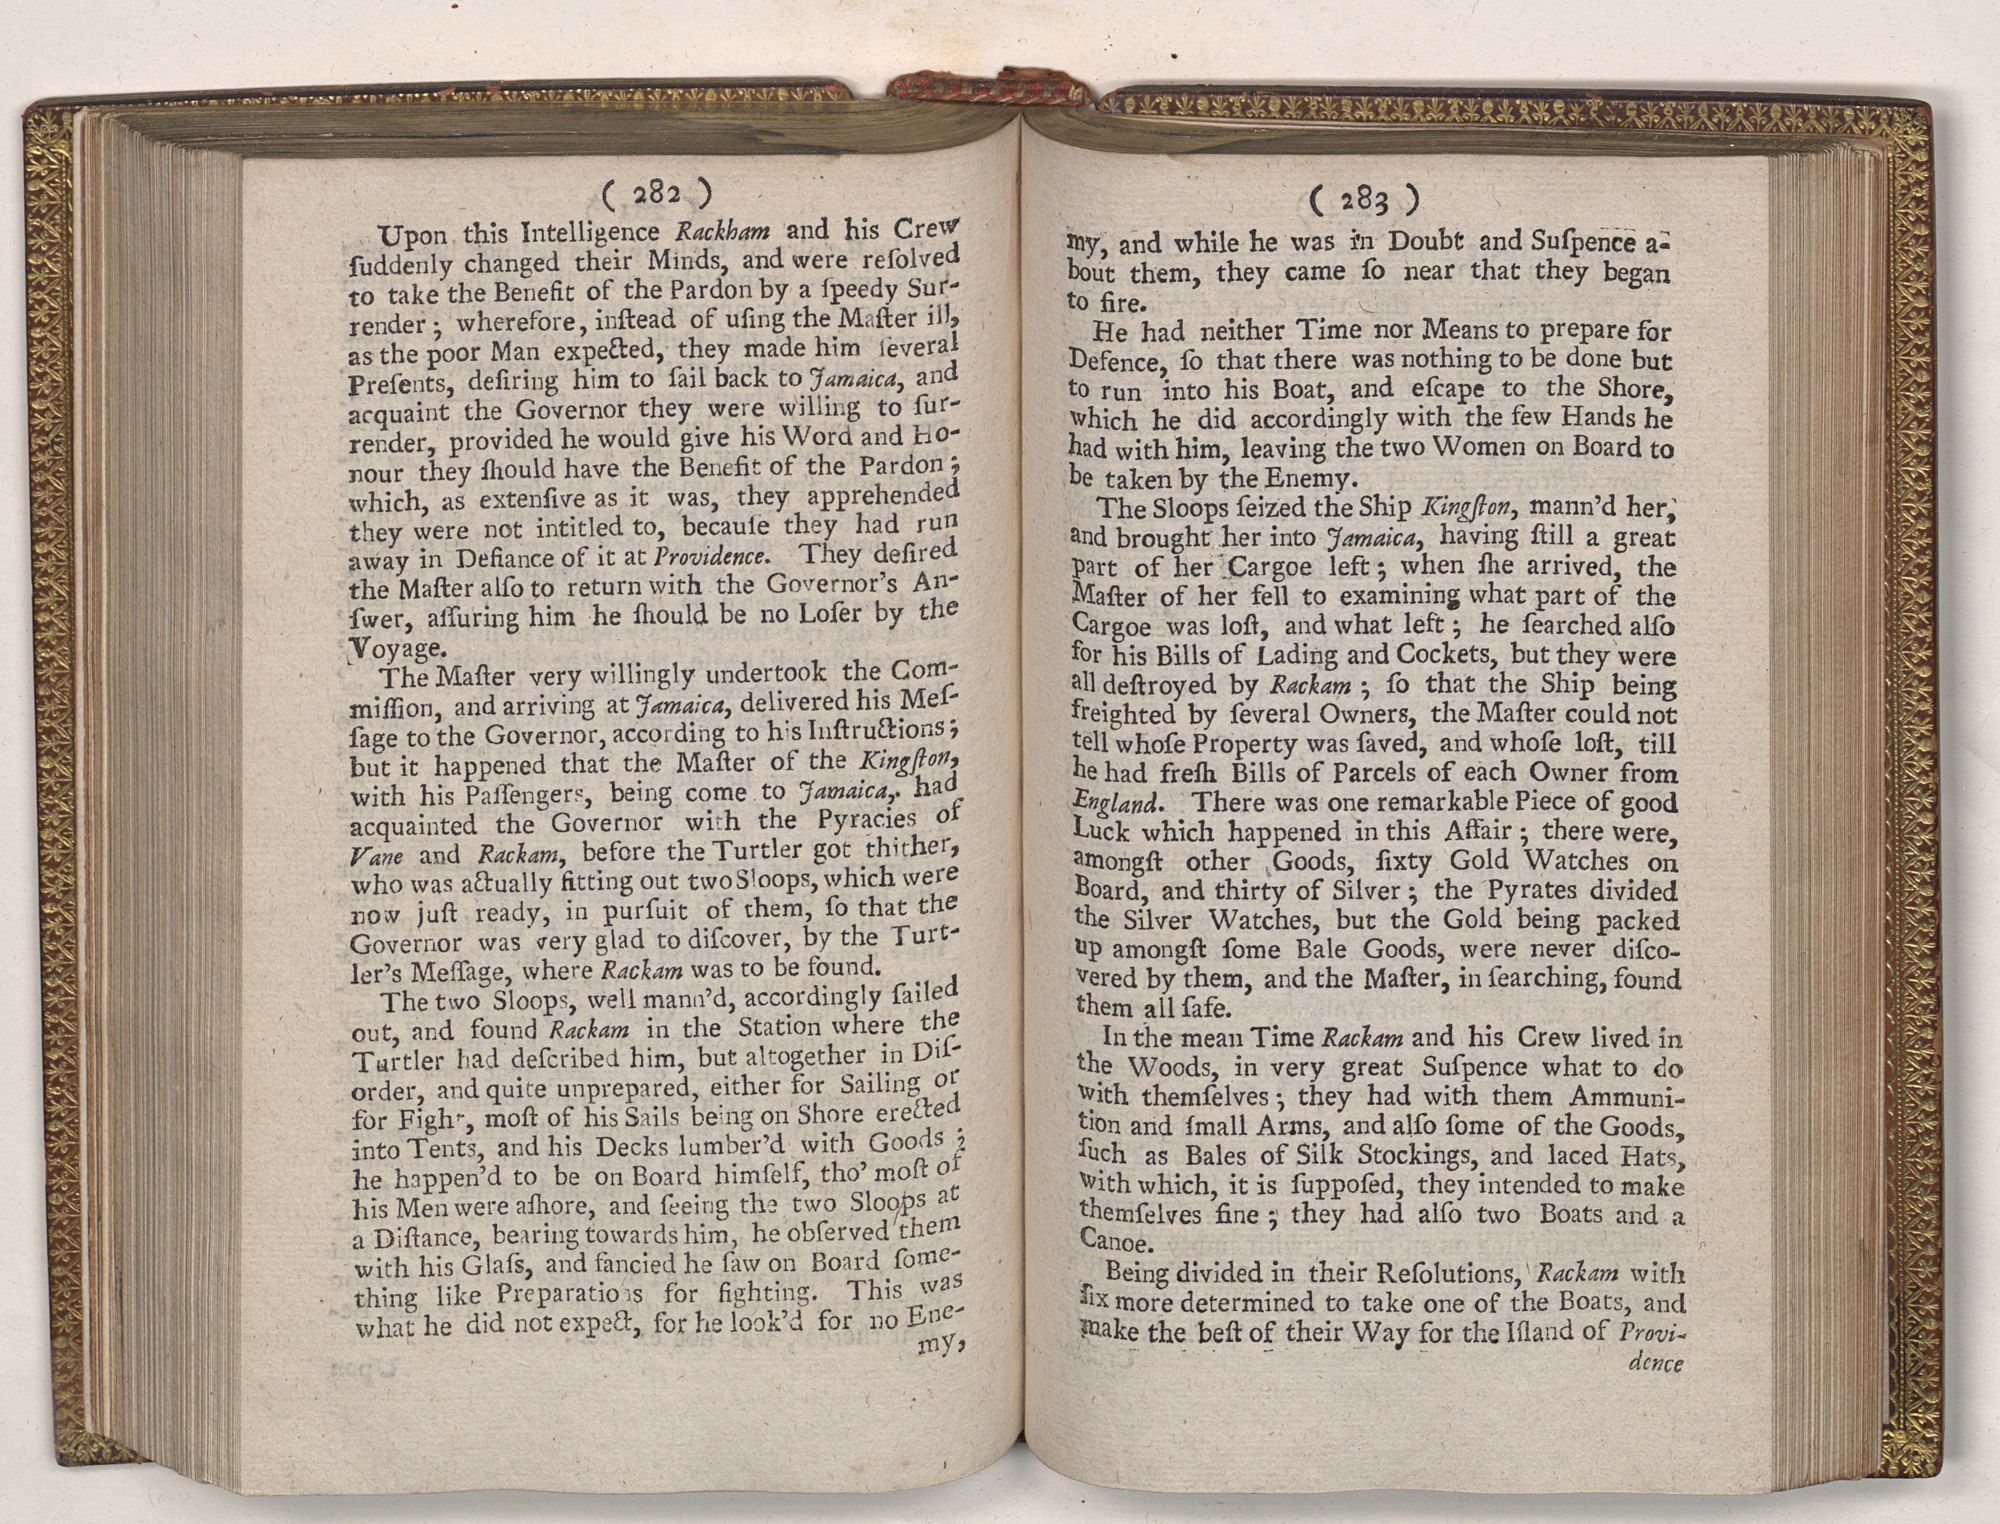 ( 282 )
Upon this Intelligence Rackham and his Crew
ſuddenly changed their Minds, and were reſolved
to take the Benefit of the Pardon by a ſpeedy Sur-
render; wherefore, inſtead of uſing the Maſter ill,
as the poor Man expected, they made him ſeveral
Preſents, deſiring him to ſail back to Jamaica, and
acquaint the Governor they were willing to ſur-
render, provided he would give his Word and Ho-
nour they ſhould have the Benefit of the Pardon;
which, as extenſive as it was, they apprehended
they were not intitled to, becauſe they had run
away in Defiance of it at Providence. They deſired
the Maſter alſo to return with the Governor's An-
ſwer, aſſuring him he ſhould be no Loſer by the
Voyage.
The Maſter very willingly undertook the Com-
miſſion, and arriving at Jamaica, delivered his Meſ-
ſage to the Governor, according to his Inſtructions;
but it happened that the Maſter of the Kingſton,
with his Paſſengers, being come to Jamaica, had
acquainted the Governor with the Pyracies of
Vane and Rackam, before the Turtler got thither,
who was actually fitting out two Sloops, which were
now juſt ready, in purſuit of them, ſo that the
Governor was very glad to diſcover, by the Turt-
ler's Meſſage, where Rackam was to be found.
The two Sloops, well mann'd, accordingly ſailed
out, and found Rackam in the Station where the
Turtler had deſcribed him, but altogether in Diſ-
order, and quite unprepared, either for Sailing or
for Fight, moſt of his Sails being on Shore erected
into Tents, and his Decks lumber'd with Goods;
he happen'd to be on Board himſelf, tho' moſt of
his Men were aſhore, and ſeeing the two Sloops at
a Diſtance, bearing towards him, he obſerved them
with his Glaſs, and fancied he ſaw on Board ſome-
thing like Preparations for fighting. This was
what he did not expect, for he look'd for no Ene-
my,
( 283 )
my, and while he was in Doubt and Suſpence a-
bout them, they came ſo near that they began
to fire.
He had neither Time nor Means to prepare for
Defence, ſo that there was nothing to be done but
to run into his Boat, and eſcape to the Shore,
which he did accordingly with the few Hands he
had with him, leaving the two Women on Board to
be taken by the Enemy.
The Sloops ſeized the Ship Kingſton, mann'd her,
and brought her into Jamaica, having ſtill a great
part of her Cargoe left; when ſhe arrived, the
Maſter of her fell to examining what part of the
Cargoe was loſt, and what left; he ſearched alſo
for his Bills of Lading and Cockets, but they were
all deſtroyed by Rackam; ſo that the Ship being
freighted by ſeveral Owners, the Maſter could not
tell whoſe Property was ſaved, and whoſe loſt, till
he had freſh Bills of Parcels of each Owner from
England. There was one remarkable Piece of good
Luck which happened in this Affair; there were,
amongſt other Goods, ſixty Gold Watches on
Board, and thirty of Silver; the Pyrates divided
the Silver Watches, but the Gold being packed
up amongſt ſome Bale Goods, were never diſco-
vered by them, and the Maſter, in ſearching, found
them all ſafe.
In the mean Time Rackam and his Crew lived in
the Woods, in very great Suſpence what to do
with themſelves; they had with them Ammuni-
tion and ſmall Arms, and alſo ſome of the Goods,
ſuch as Bales of Silk Stockings, and laced Hats,
with which, it is ſuppoſed, they intended to make
themſelves fine; they had alſo two Boats and a
Canoe.
Being divided in their Reſolutions, Rackam with
ſix more determined to take one of the Boats, and
make the beſt of their Way for the Iſland of Provi-
dence